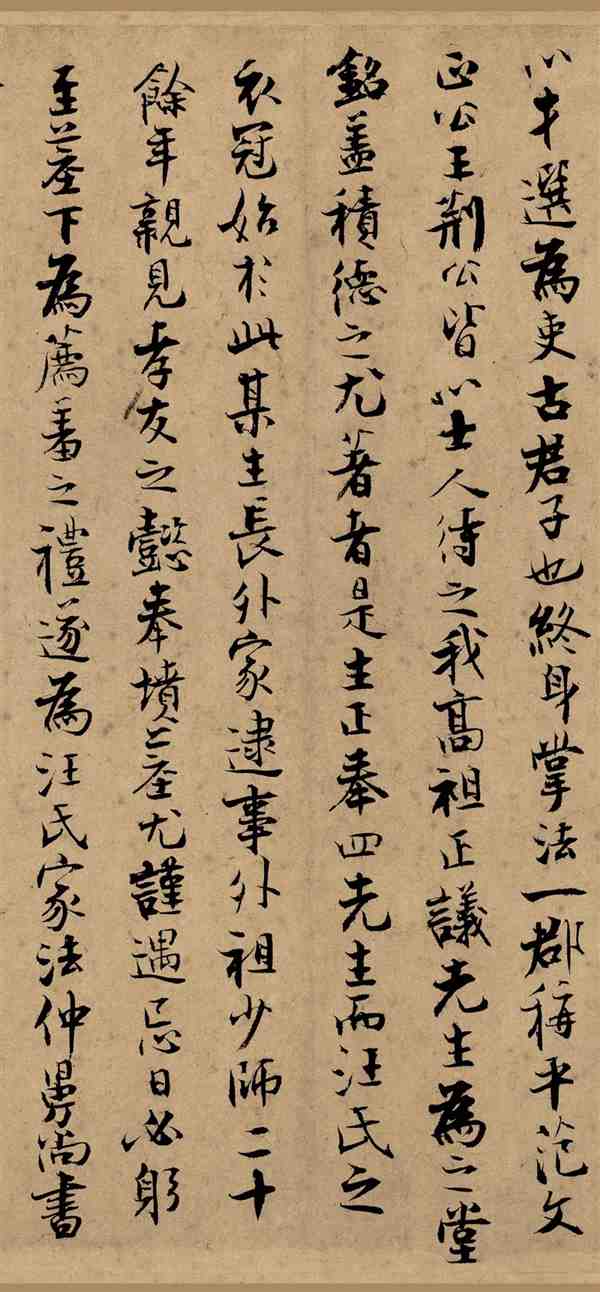 以才選為吏古君子也終身掌法一郡稱平范文
正公王荆公皆以士人待之我高祖正議先生為之堂
銘蓋積德之尤著者是生正奉四先生而汪氏之
衣冠始於此某生長外家逮事外祖少師二十
餘年親見孝友之懿奉墳墓尤謹遇忌日必躬
至墓下為薦羞之禮遂為汪氏家法仲舅尚書